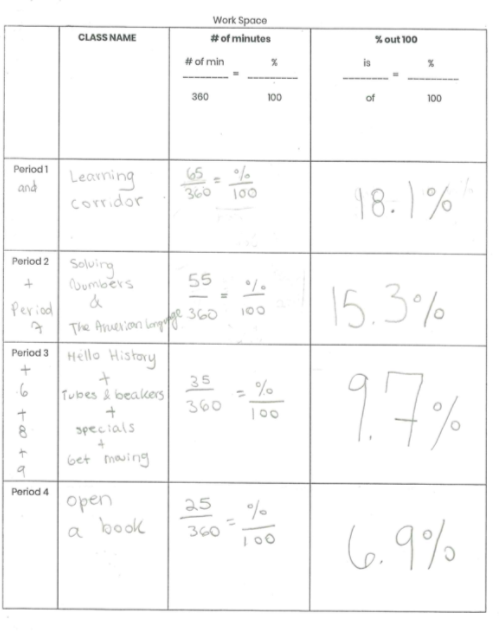 Work Space
CLASS NAME
# of minutes
% out 100
# of min = %
360 100
is = %
of 100
Period 1
and
Learning
corridor
65 = %
360 100
18.1%
Period 2
+
Period
7
Solving
Numbers
&
The American Language
55 = %
360 100
15.3%
Period 3
+
6
+
8
+
9
Hello History
+
Tubes & beakers
+
specials
+
Get moving
35 = %
360 100
9.7%
Period 4
open
a book
25 = %
360 100
6.9%